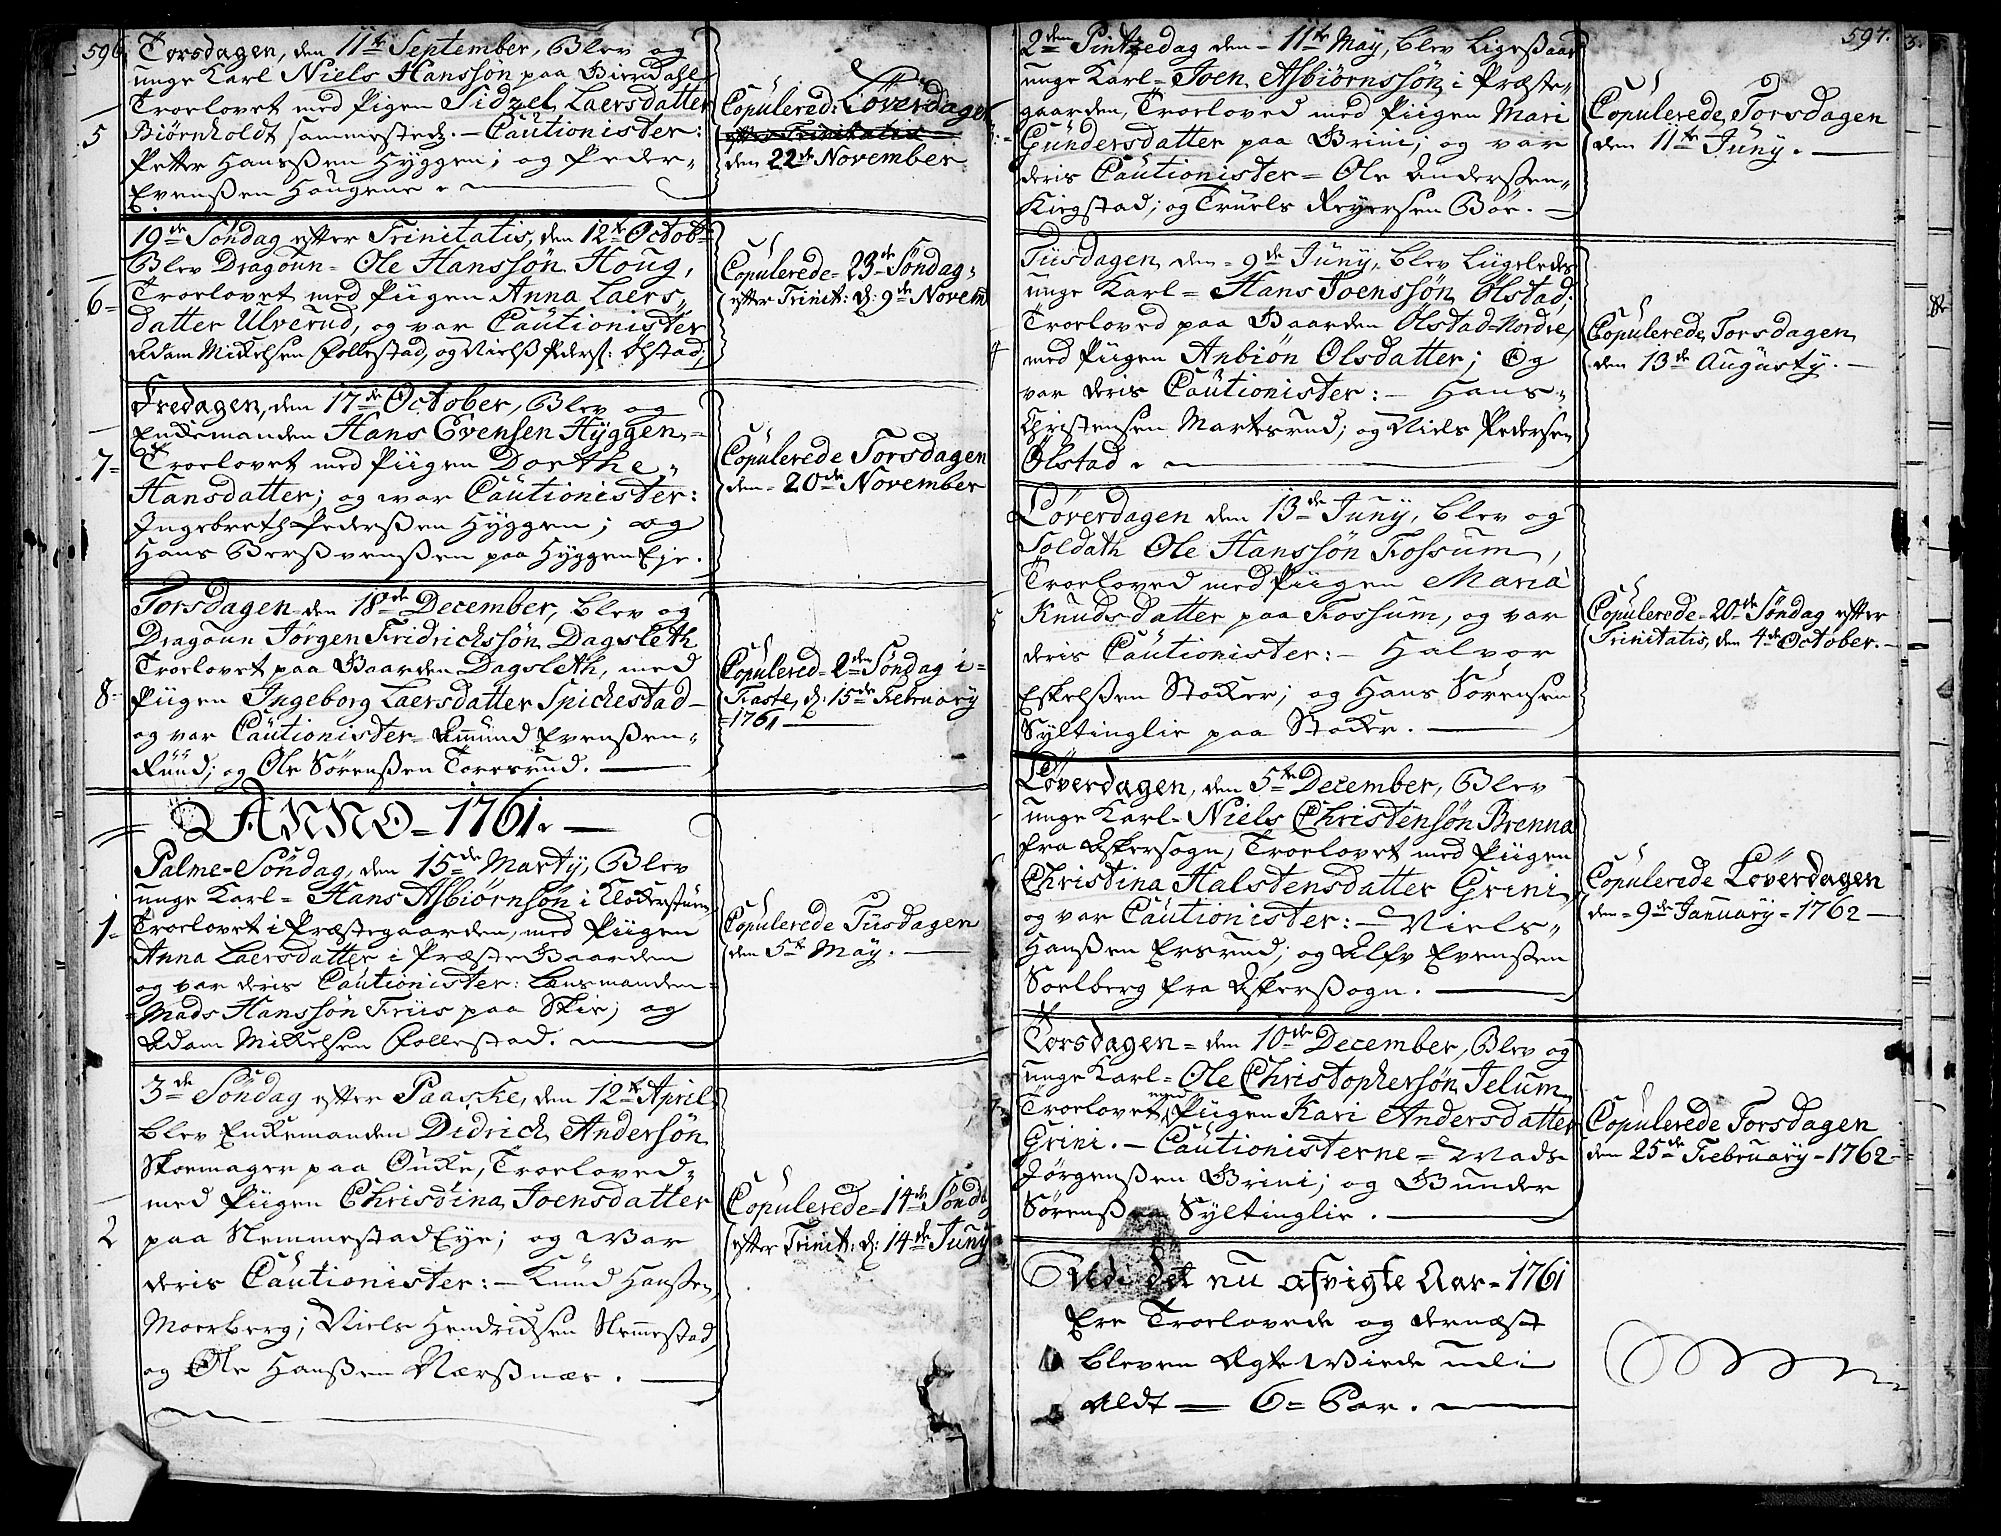 596.
Torsdagen, den 11te September, Blev og
unge Karl Niels Hanssøn paa Bierdahl
Troelovet med Pigen Sidzel Laersdatter
5
Biørnholdt sammesteds. - Cautionister:
Petter Hanssen Hyggen; og Peder
Evenssen Haugene.
Copulered: Løverdagen
efter Trinitatis
den 22de November
19de Søndag efter Trinitatis, den 12te Octob:
Blev Dragoun = Ole Hanssøn Houg,
6=
Troelovet med Piigen Anna Laers=
datter Ulverud, og var Cautionister
Adam Mickelsen Follestad, og Niels Peders: Olstad,
Copulerede = 23de Søndag
efter Trinit: d: 9de Novem
Fredagen, den 17de October, Blev og
Enckemanden Hans Evensen Hyggen =
7=
Troelovet med Piigen Dorthe =
Hansdatter; og war Cautionister:
Ingebreth Pederssen Hyggen; og
Hans Berssvenssen paa Hyggen Eje.
Copulerede Torsdagen
den = 20de November
Torsdagen den 18de December, blev og
Dragoun Jørgen Fridrichssøn Dagsleth
Troelovet paa Gaarden Dagsleth, med
8=
Piigen Ingeborg Laersdatter Spichestad
og var Cautionister = Amund Evenssen
Ruud; og Ole Sørenssen Toresrud.
Copulered = 2den Søndag i
Faste, d: 15de February
=1761
ANNO = 1761.
Palme=Søndag, den 15de Marty, Blev
unge Karl = Hans Asbiørnsøn i Klockerstuen
1=
Troelovet i Præstegaarden, med Piigen
Anna Laersdatter i Præste Gaarden
og var deris Cautionister: Lensmanden
Mads Hanssøn Friis paa Skie; og
Adam Mikkelsen Follestad.
Copulerede Tiisdagen
den 5te May.
3de Søndag efter Paaske, den 12te April
blev Enckemanden Didrich Andersøn
Skoemager paa Oucke, Troeloved
med Piigen Chrisdina Joensdatter
2
paa Nemmestad Eye; og war
deris Cautionister: - Knud Hanssen
Moerberg; Niels Hendrichsen Nemmestad
og Ole Hanssen Nærssnæs.
Copulerede = 14de Søndag
efter Trinit: d: 14de Juny
597.
2den Pintzedag den = 11te May, blev Ligessaa
unge Karl = Joen Asbiørnssøn i Præste=
gaarden, Troeloved med Piigen Mari
Gundersdatter paa Grini, og var
deris Cautionister = Ole Anderssen
Kiegstad; og Truels Reyersen Bøe.
Copulerede Torsdagen
den 11te Juny.
Tiisdagen den = 9de Juny, blev Liigeledes
unge Karl = Hans Joenssøn Olstad
Troeloved paa Gaarden Olstad=Nordre,
4
med Piigen Anbiøn Olsdatter; og
var deris Cautionister: - Hans
Christensen Martesrud; og Niels Pedersen
Olstad.
Copulerede Torsdagen
den 13de Augusty.
Løverdagen den 13de Juny, blev og
Soldath Ole Hanssøn Fossum,
Troeloved med Piigen Maria
5
Knudsdatter paa Fossum, og var
deris Cautionister: - Halvor
Eskelssen Stocker; og Hans Sørensen
Syltinglie paa Stocker.
Copulerede = 20de Søndag efter
Trinitatis, den 4de October.
Løverdagen, den 5te December, Blev
unge Karl = Niels Christensøn Brenna
fra Askersogn, Troelovet med Piigen
6
Christina Halstensdatter Grini
og var Cautionister: - Niels
Hanssen Ersrud; og Elfv Evenssen
Soelberg fra Askerssogn.
Copulerede Løverdagen
den = 9de January = 1762
Torsdagen = den 10de December, Blev og
unge Karl = Ole Christophersøn Jelum
Troelovet med Piigen Kari Andersdatter
Grini. - Cautionisterne = Mads
Jørgenssen Grini; og Gunder
Sørenssen Syltinglie.
Copulerede Torsdagen
den 25de February = 1762
Udi det nu afvigte Aar = 1761
Ere Troelovede og dernæst
bleven Ægte Wiede udi
Aldt = 6 = Par.